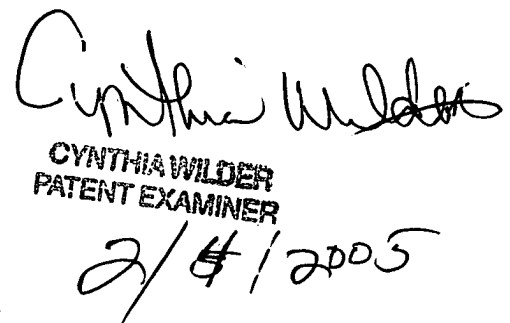 Cynthia Wilder
CYNTHIA WILDER
PATENT EXAMINER
2/ /2005